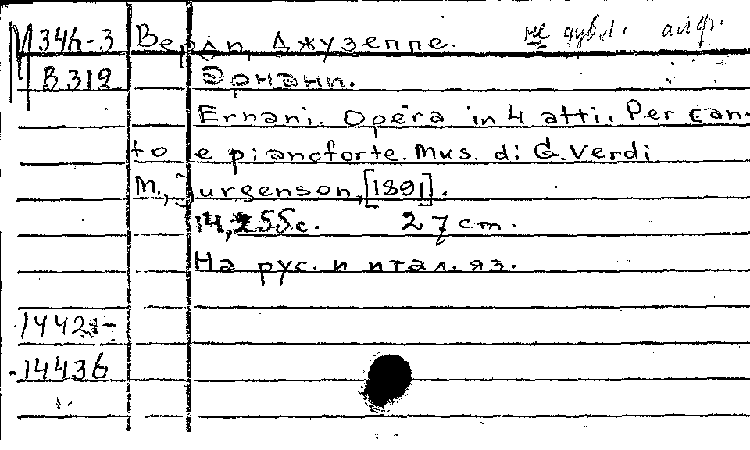 М 346-3 Верди, Джузеппе. не дубл. алф.
В 319 Эрнани.
Ernani. Opera in 4 atti. Per can-
to e pianoforte. Mus. di G. Verdi
M., Jurgenson, [1891].
14, 255 с. 27 cm.
На рус. и итал. яз.
14421-
14436